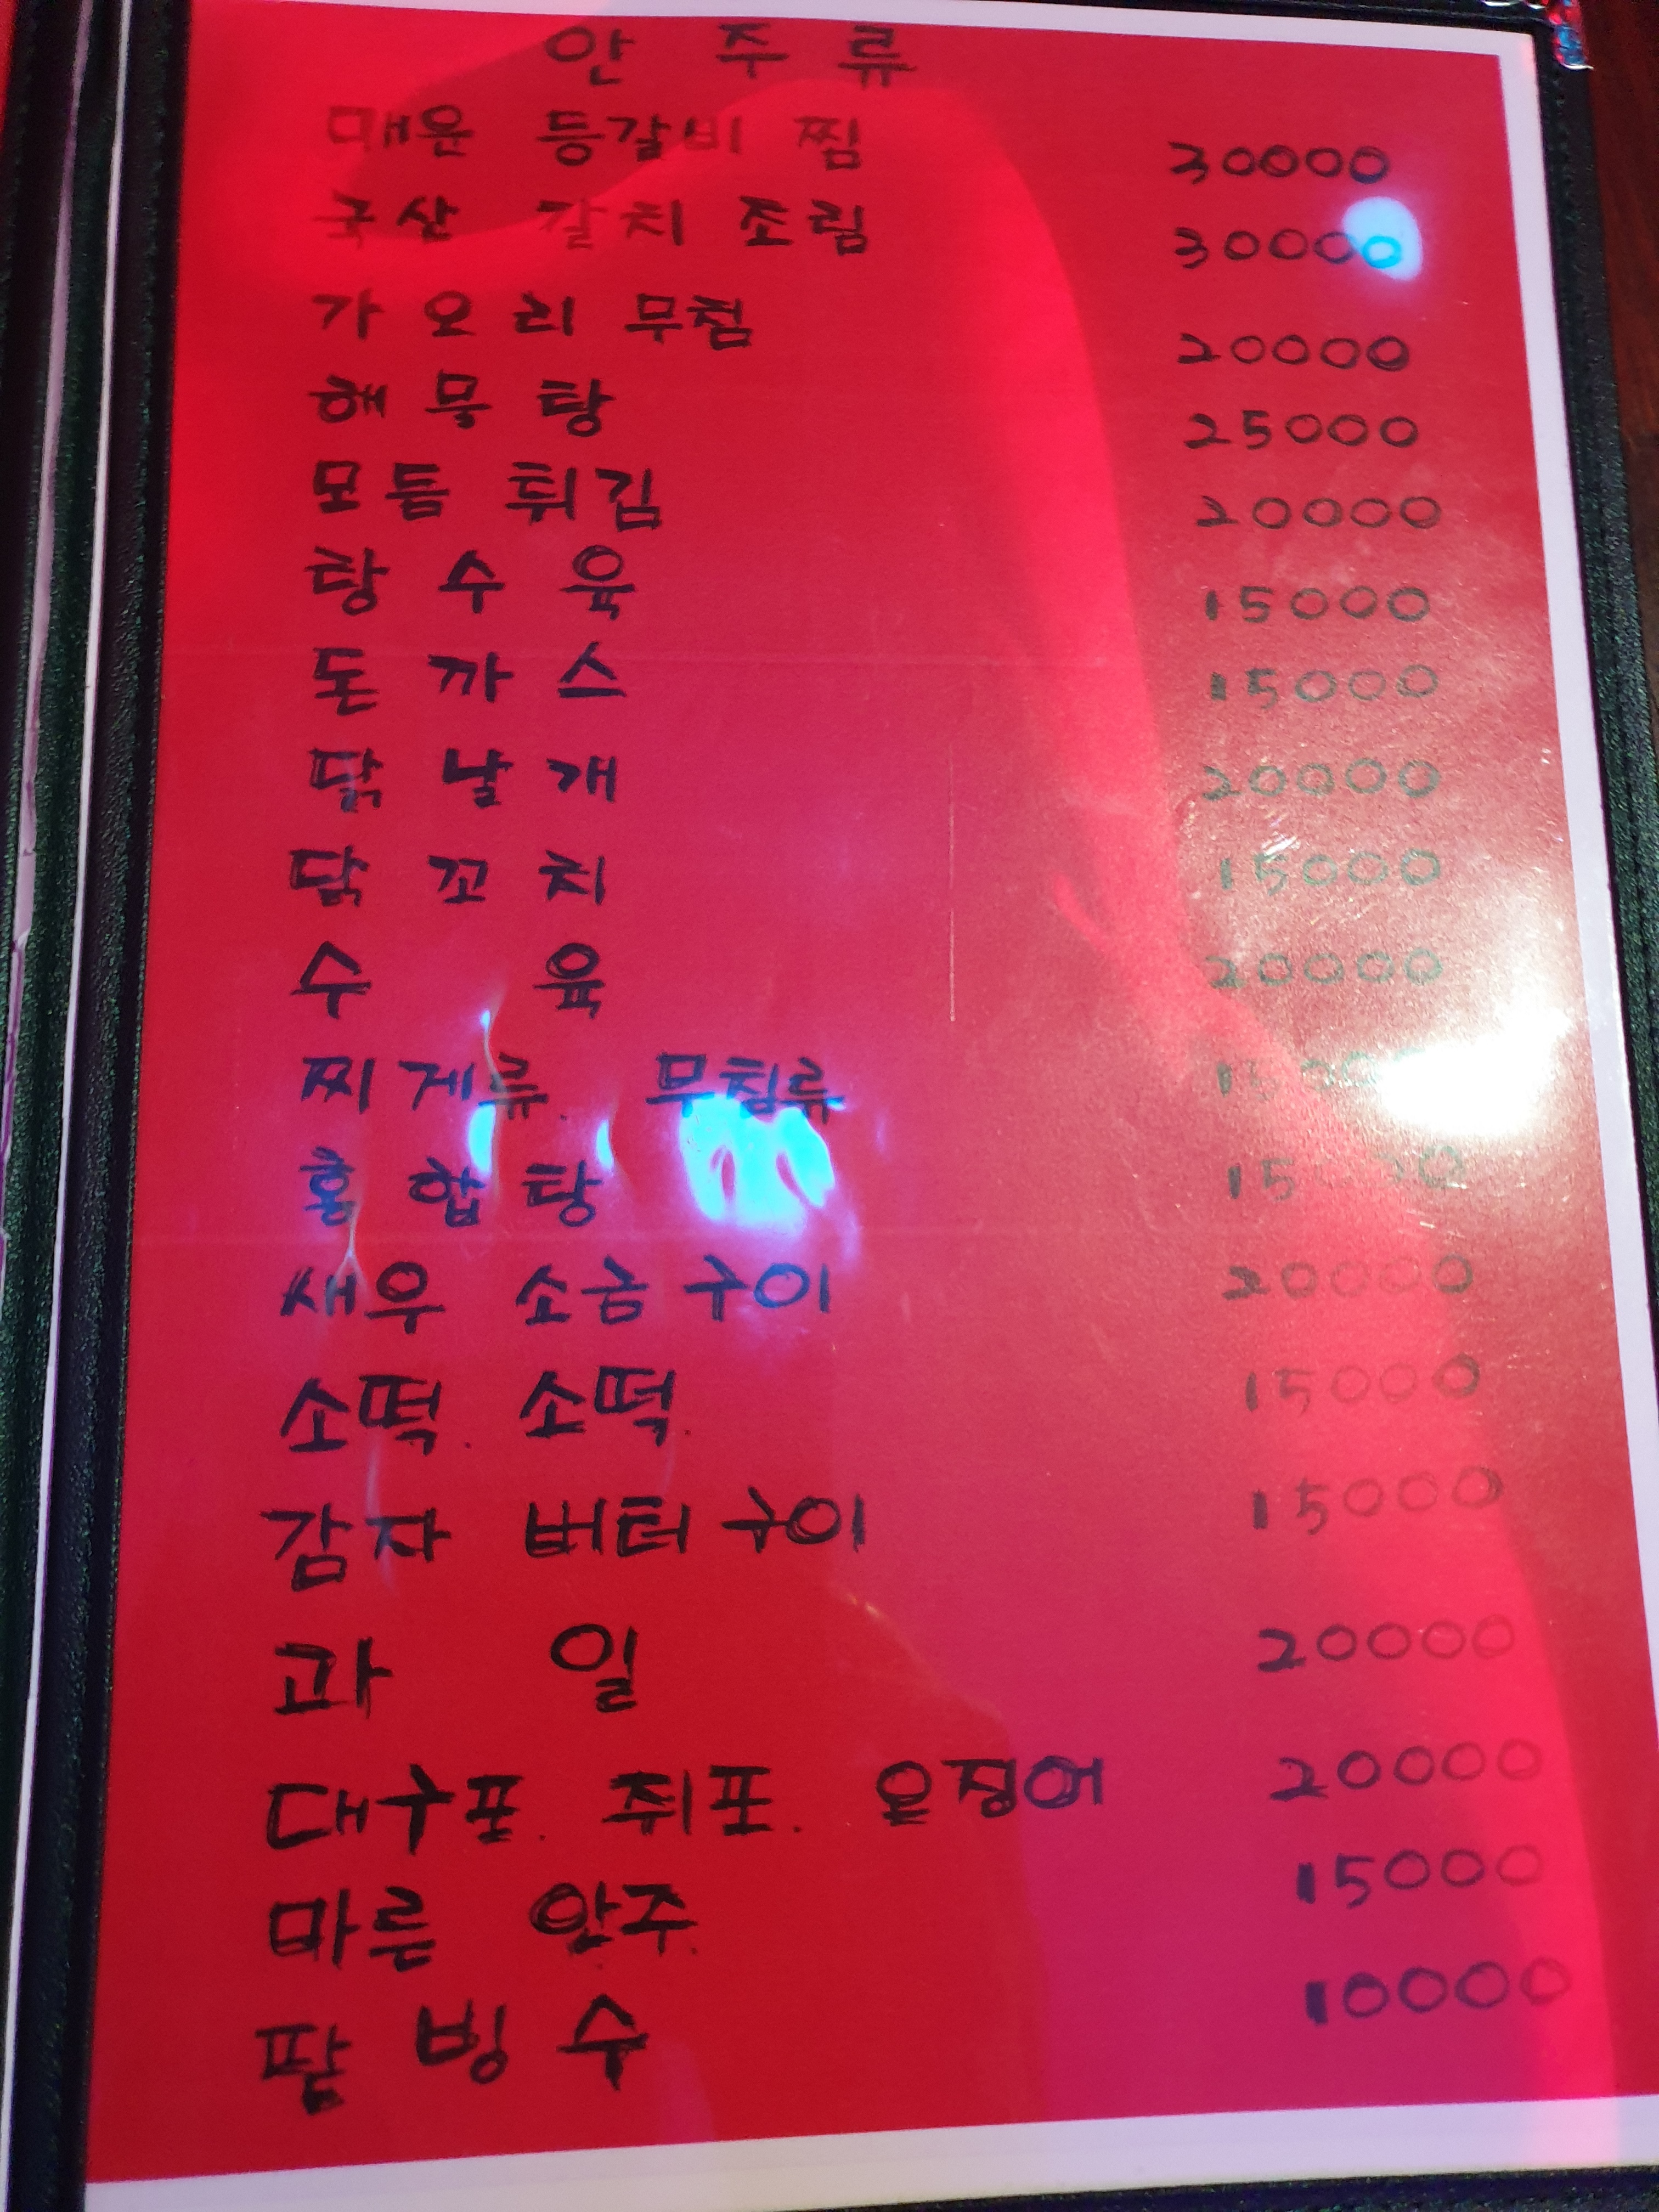 안 주 류
매운 등갈비 찜 30000
국산 갈치 조림 30000
가 오 리 무침 20000
해 물 탕 25000
모 듬 튀 김 20000
탕 수 육 15000
돈 까 스 15000
닭 날 개 20000
닭 꼬 치 15000
수 육 20000
찌 게류. 무침류 15000
홍 합 탕 15000
새우 소금 구이 20000
소떡. 소떡. 15000
감자 버터 구이 15000
과 일 20000
대구포. 쥐포. 오징어 20000
마른 안주. 15000
팥 빙 수 10000